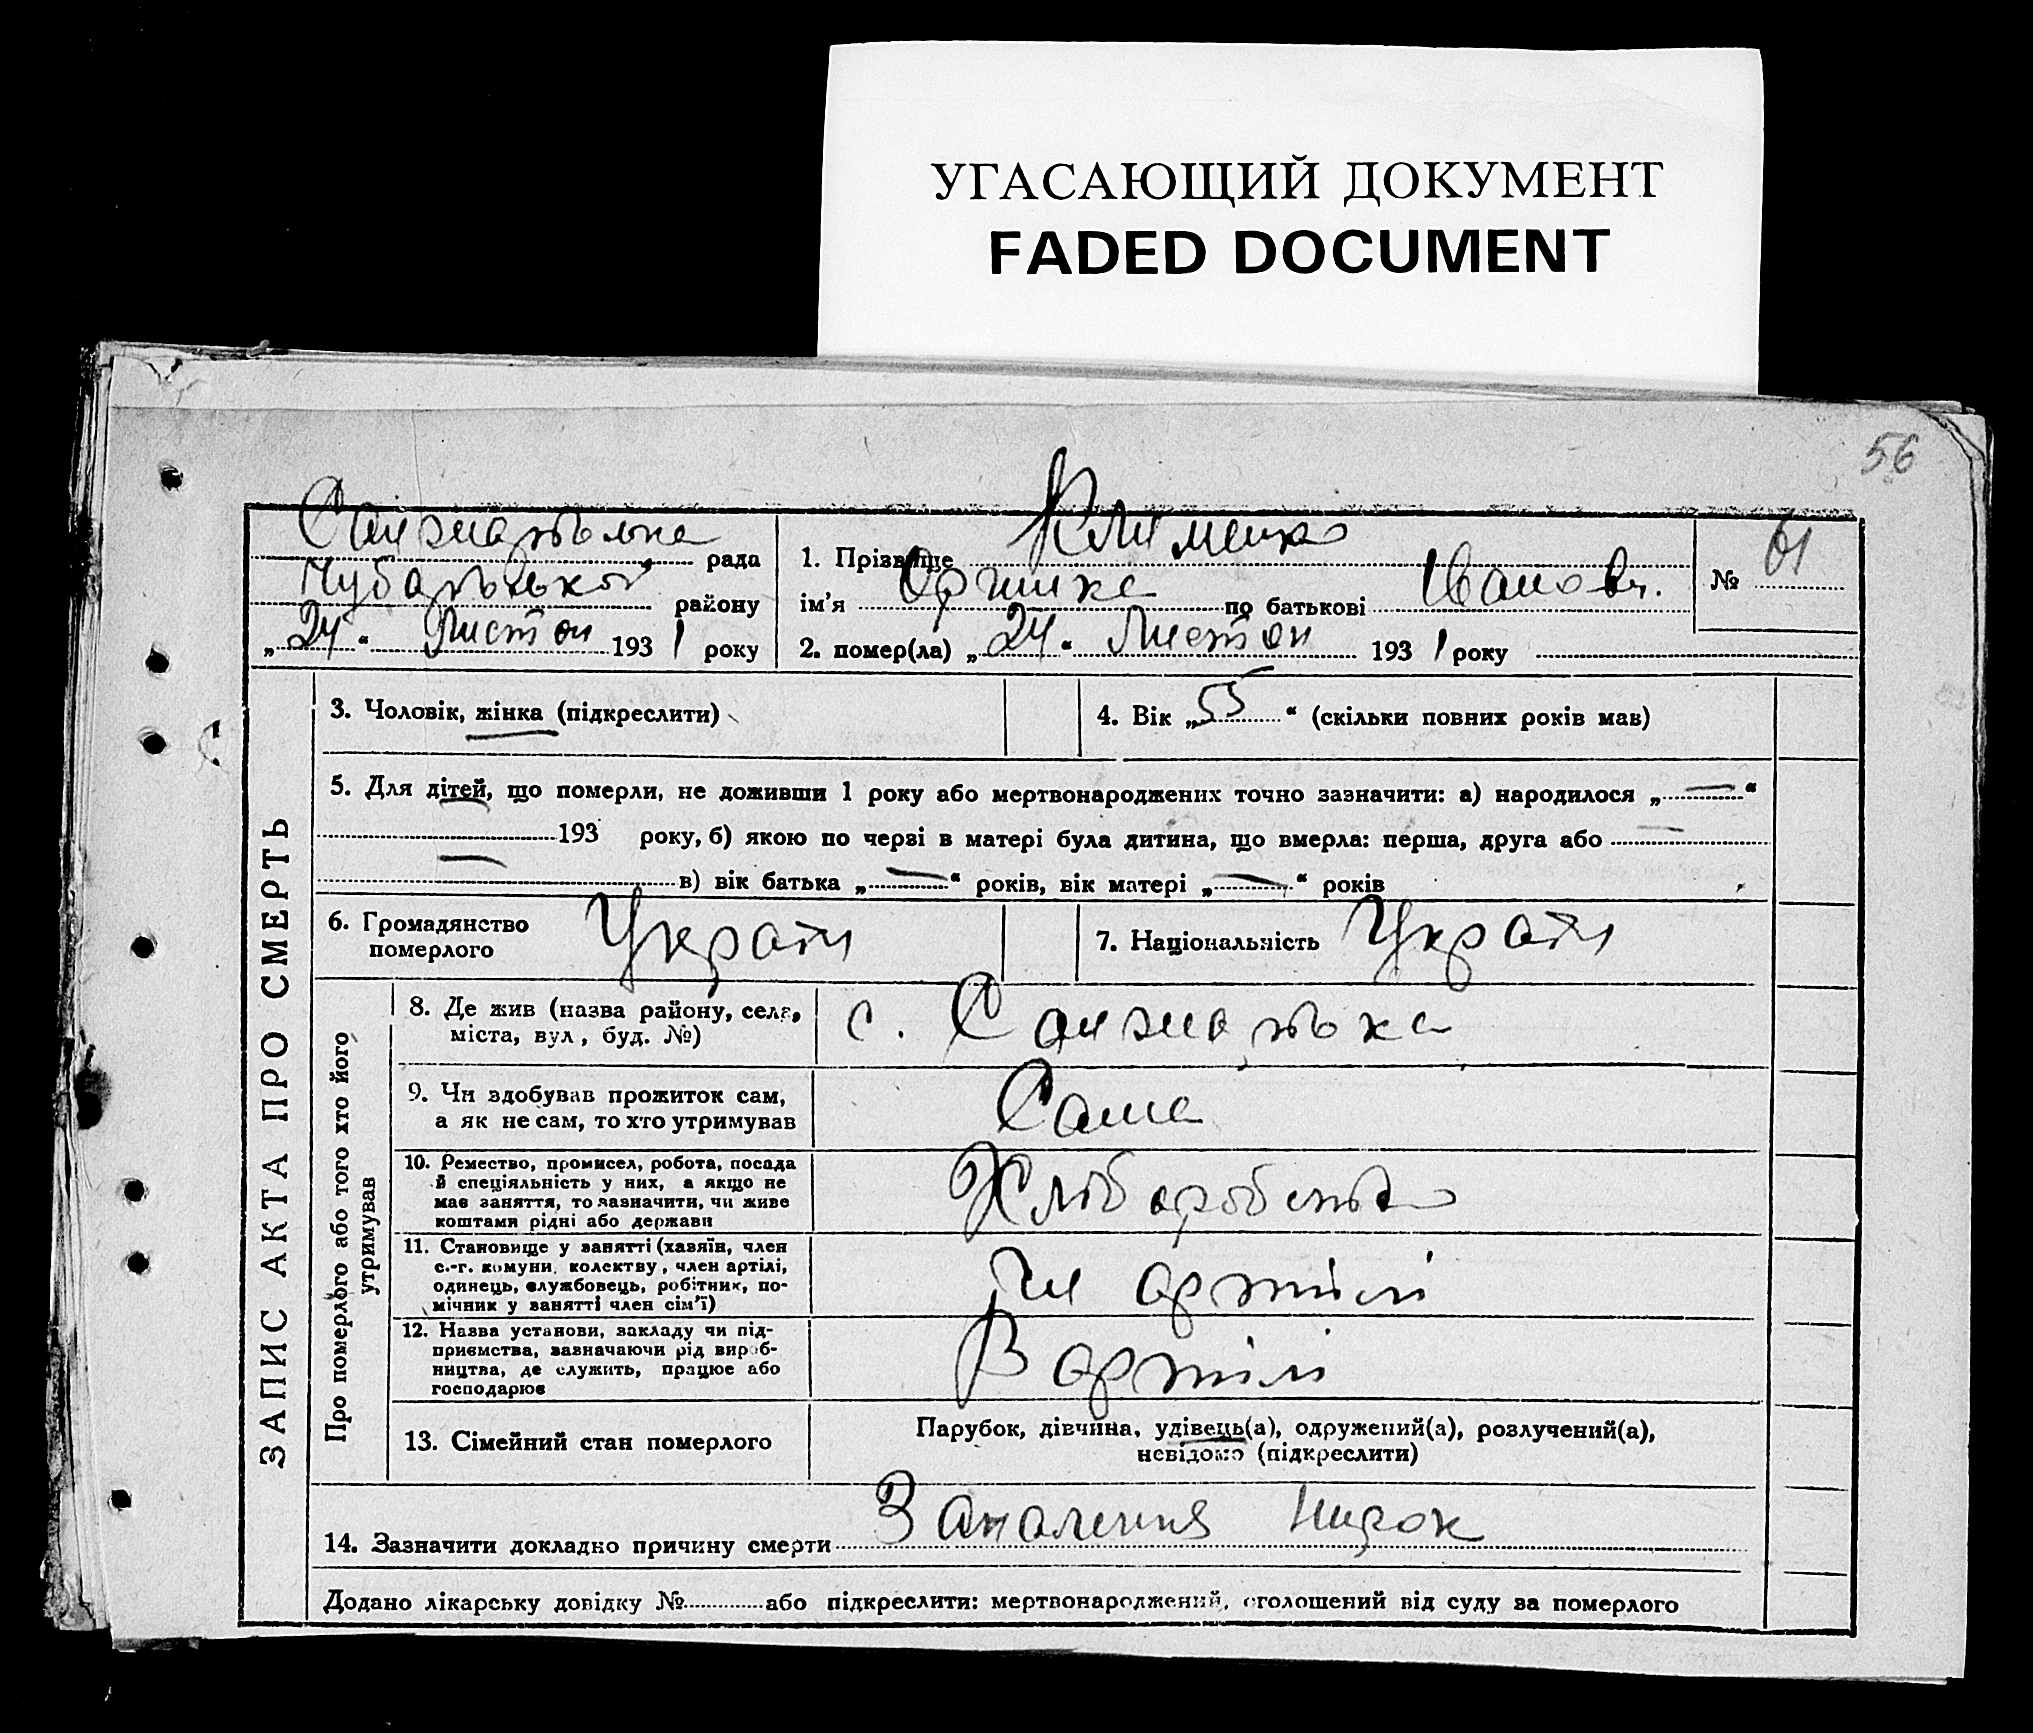 УГАСАЮЩИЙ ДОКУМЕНТ
FADED DOCUMENT
56
рада
району
„24“ Листоп 1931 року
1. Прізвище Клименко
ім’я по батькові Іванов.
2. помер(ла) „24“ Листоп 1931 року
№ 61
ЗАПИС АКТА ПРО СМЕРТЬ
3. Чоловік, жінка (підкреслити)
4. Вік „55“ (скільки повних років мав)
5. Для дітей, що померли, не доживши 1 року або мертвонароджених точно зазначити: а) народилося „—“
193 року, б) якою по черзі в матері була дитина, що вмерла: перша, друга або —
— в) вік батька „—“ років, вік матері „—“ років
6. Громадянство
померлого
Україн
7. Національність Україн
Про померлого або того хто його
утримував
8. Де жив (назва району, села,
міста, вул, буд. №)
с. Санжарівка
9. Чи здобував прожиток сам,
а як не сам, то хто утримував
Сама
10. Ремество, промисел, робота, посада
й спеціяльність у них, а якщо не
має заняття, то зазначити, чи живе
коштами рідні або держави
11. Становище у занятті (хазяїн, член
с.-г. комуни, колектву, член артілі,
одинець, службовець, робітник, по-
мічник у занятті член сім’ї)
Чл артілі
12. Назва установи, закладу чи під-
приємства, зазначаючи рід вироб-
ництва, де служить, працює або
господарює
В артілі
13. Сімейний стан померлого
Парубок, дівчина, удівець(а), одружений(а), розлучений(а),
невідомо (підкреслити)
14. Зазначити докладно причину смерти Запалення нирок
Додано лікарську довідку № або підкреслити: мертвонароджений, оголошений від суду за померлого